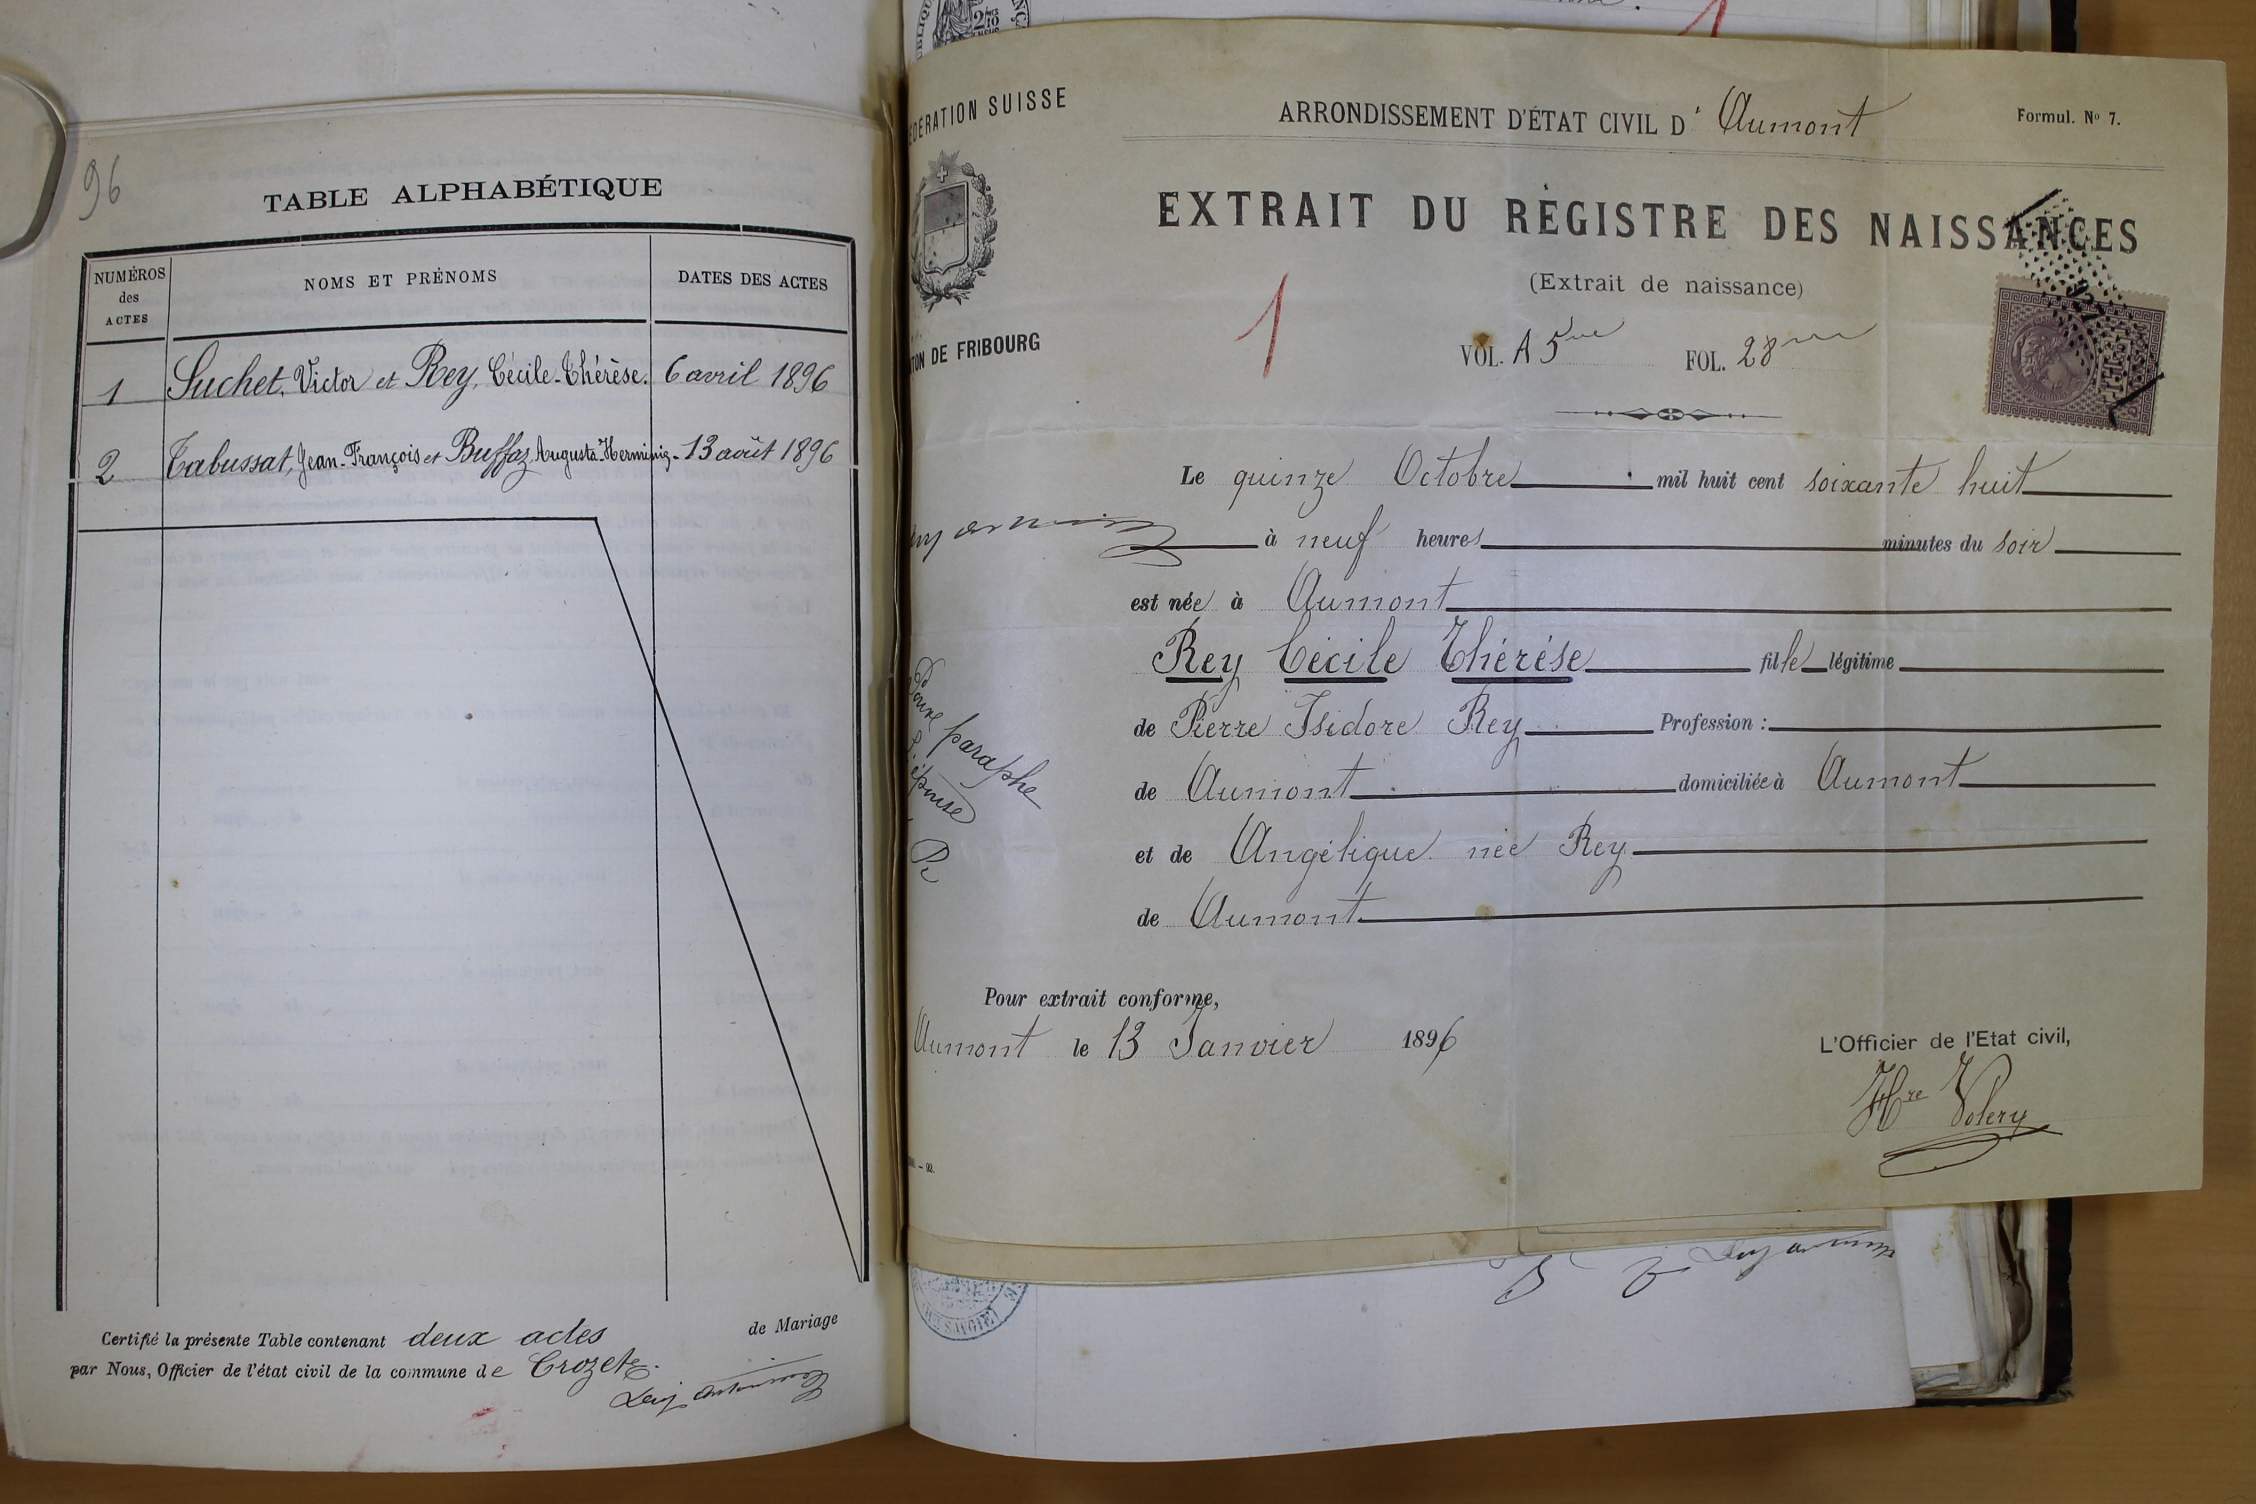 96
TABLE ALPHABÉTIQUE
NUMÉROS
des
ACTES
NOMS ET PRÉNOMS
DATES DES ACTES
1 Suchet, Victor et Rey, Cécile-Thérèse. 6 avril 1896
2 Tabussat, Jean-François et Buffaz Augusta-Herminie - 13 août 1896
Certifié la présente Table contenant deux actes de Mariage
par Nous, Officier de l'état civil de la commune de Crozet
ÉDÉRATION SUISSE
TON DE FRIBOURG
ARRONDISSEMENT D'ÉTAT CIVIL D' Aumont
Formul. Nº 7.
EXTRAIT DU REGISTRE DES NAISSANCES
(Extrait de naissance)
1
VOL. A 5me FOL. 28me
Le quinze Octobre mil huit cent soixante huit
à neuf heures minutes du soir
est née à Aumont
Rey Cécile Thérèse fille légitime
de Pierre Isidore Rey Profession :
de Aumont domiciliée à Aumont
et de Angélique née Rey
de Aumont
paraphe
L'épouse
R
Pour extrait conforme,
Aumont le 13 Janvier 1896
L'Officier de l'Etat civil,
Hre Volery